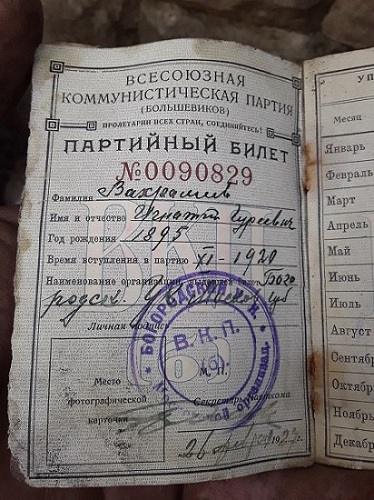 ВСЕСОЮЗНАЯ
КОММУНИСТИЧЕСКАЯ ПАРТИЯ
(БОЛЬШЕВИКОВ)
ПРОЛЕТАРИИ ВСЕХ СТРАН, СОЕДИНЯЙТЕСЬ!
ПАРТИЙНЫЙ БИЛЕТ
№0090829
Фамилия
Имя и отчество Игнатий Гурьевич
Год рождения 1895
Время вступления в партию XI-1920
Наименование организации, выдавшей билет Бого
родск.
Личная подпись
В.К.П.
(б)
М. П.
Место
фотографической
карточки
Секретарь
26 192 г.
Месяц
Январь
Февраль
Март
Апрель
Май
Июнь
Июль
Август
Сентябр
Октябр
Ноябрь
Декабр